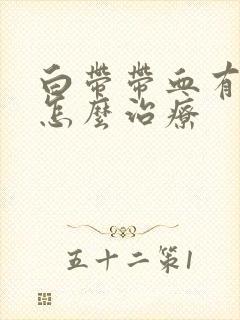 白帶帶血有
怎麼治療
五十二第1